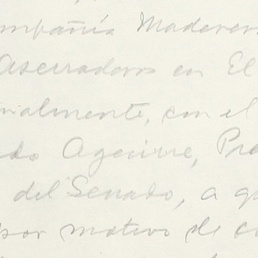 mpañía Maderer
Aserradoros en El
ialmente, con el
do Aguirre, Pre
del Senado, a q
por motivo de c